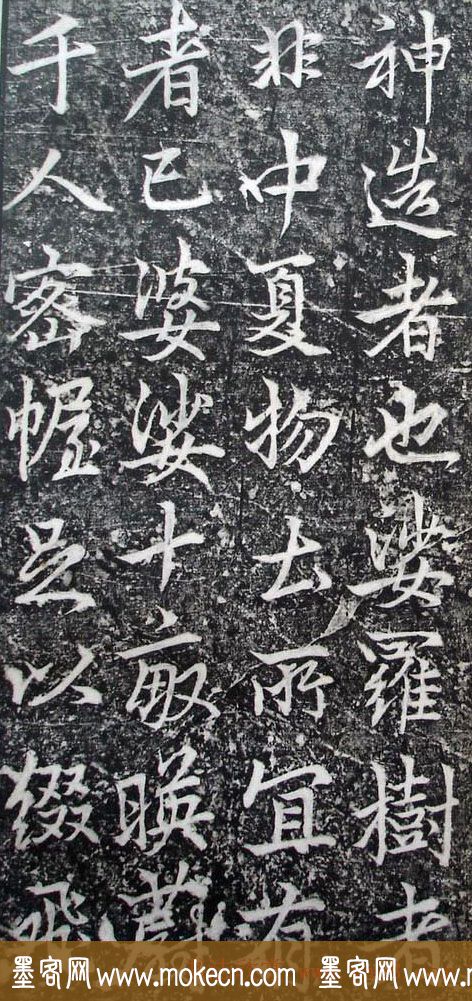 神造者也娑羅樹者
非中夏物土所宜有
者已婆娑十畝暎蔚
千人密幄足以綴飛
墨客网www.mokecn.com 墨客网www.mokecn